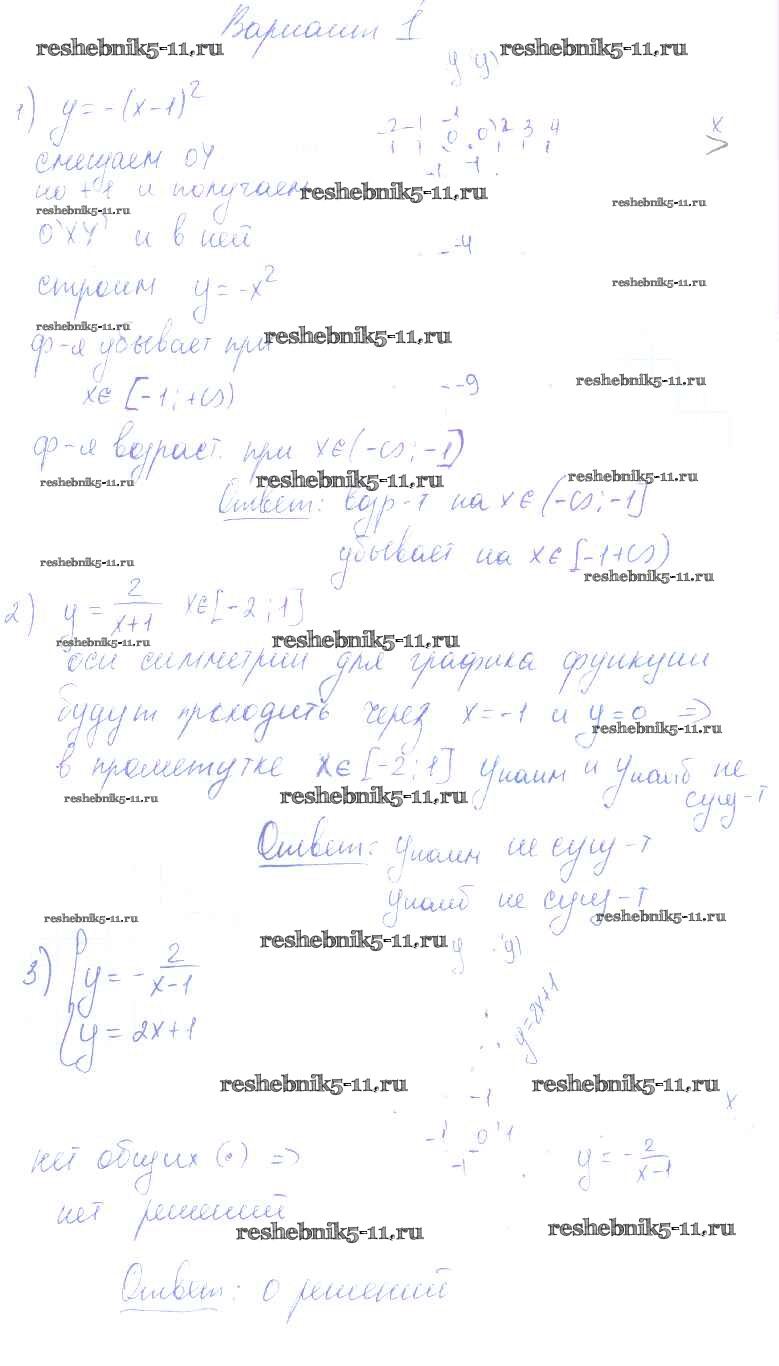 Вариант 1
reshebnik5-11.ru reshebnik5-11.ru
y y'
1) y = -(x-1)²
-2 -1 -1 0 0' 2 3 4 x
смещаем OY
-1 -1
на +1 и получаем reshebnik5-11.ru
reshebnik5-11.ru reshebnik5-11.ru
O'XY' и в ней
-4
строим y = -x²
reshebnik5-11.ru
reshebnik5-11.ru reshebnik5-11.ru
ф-я убывает при
x∈[-1;+∞) -9 reshebnik5-11.ru
ф-я возраст. при x∈(-∞;-1]
reshebnik5-11.ru reshebnik5-11.ru reshebnik5-11.ru
Ответ: возр-т на x∈(-∞;-1]
убывает на x∈[-1+∞)
reshebnik5-11.ru reshebnik5-11.ru
2) y = 2/(x+1) x∈[-2;1]
reshebnik5-11.ru reshebnik5-11.ru
оси симметрии для графика функции
будут проходить через x=-1 и y=0 =>
reshebnik5-11.ru
в прометутке x∈[-2;1] yнаим и yнаиб не
reshebnik5-11.ru reshebnik5-11.ru сущ-т
Ответ: yнаим не сущ-т
yнаиб не сущ-т
reshebnik5-11.ru reshebnik5-11.ru
reshebnik5-11.ru
y y'
3) { y = -2/(x-1)
y = 2x+1
y=2x+1
reshebnik5-11.ru reshebnik5-11.ru
-1 x
-1 0 1
-1
нет общих (•) => y = -2/(x-1)
нет решений
reshebnik5-11.ru reshebnik5-11.ru
Ответ: 0 решений